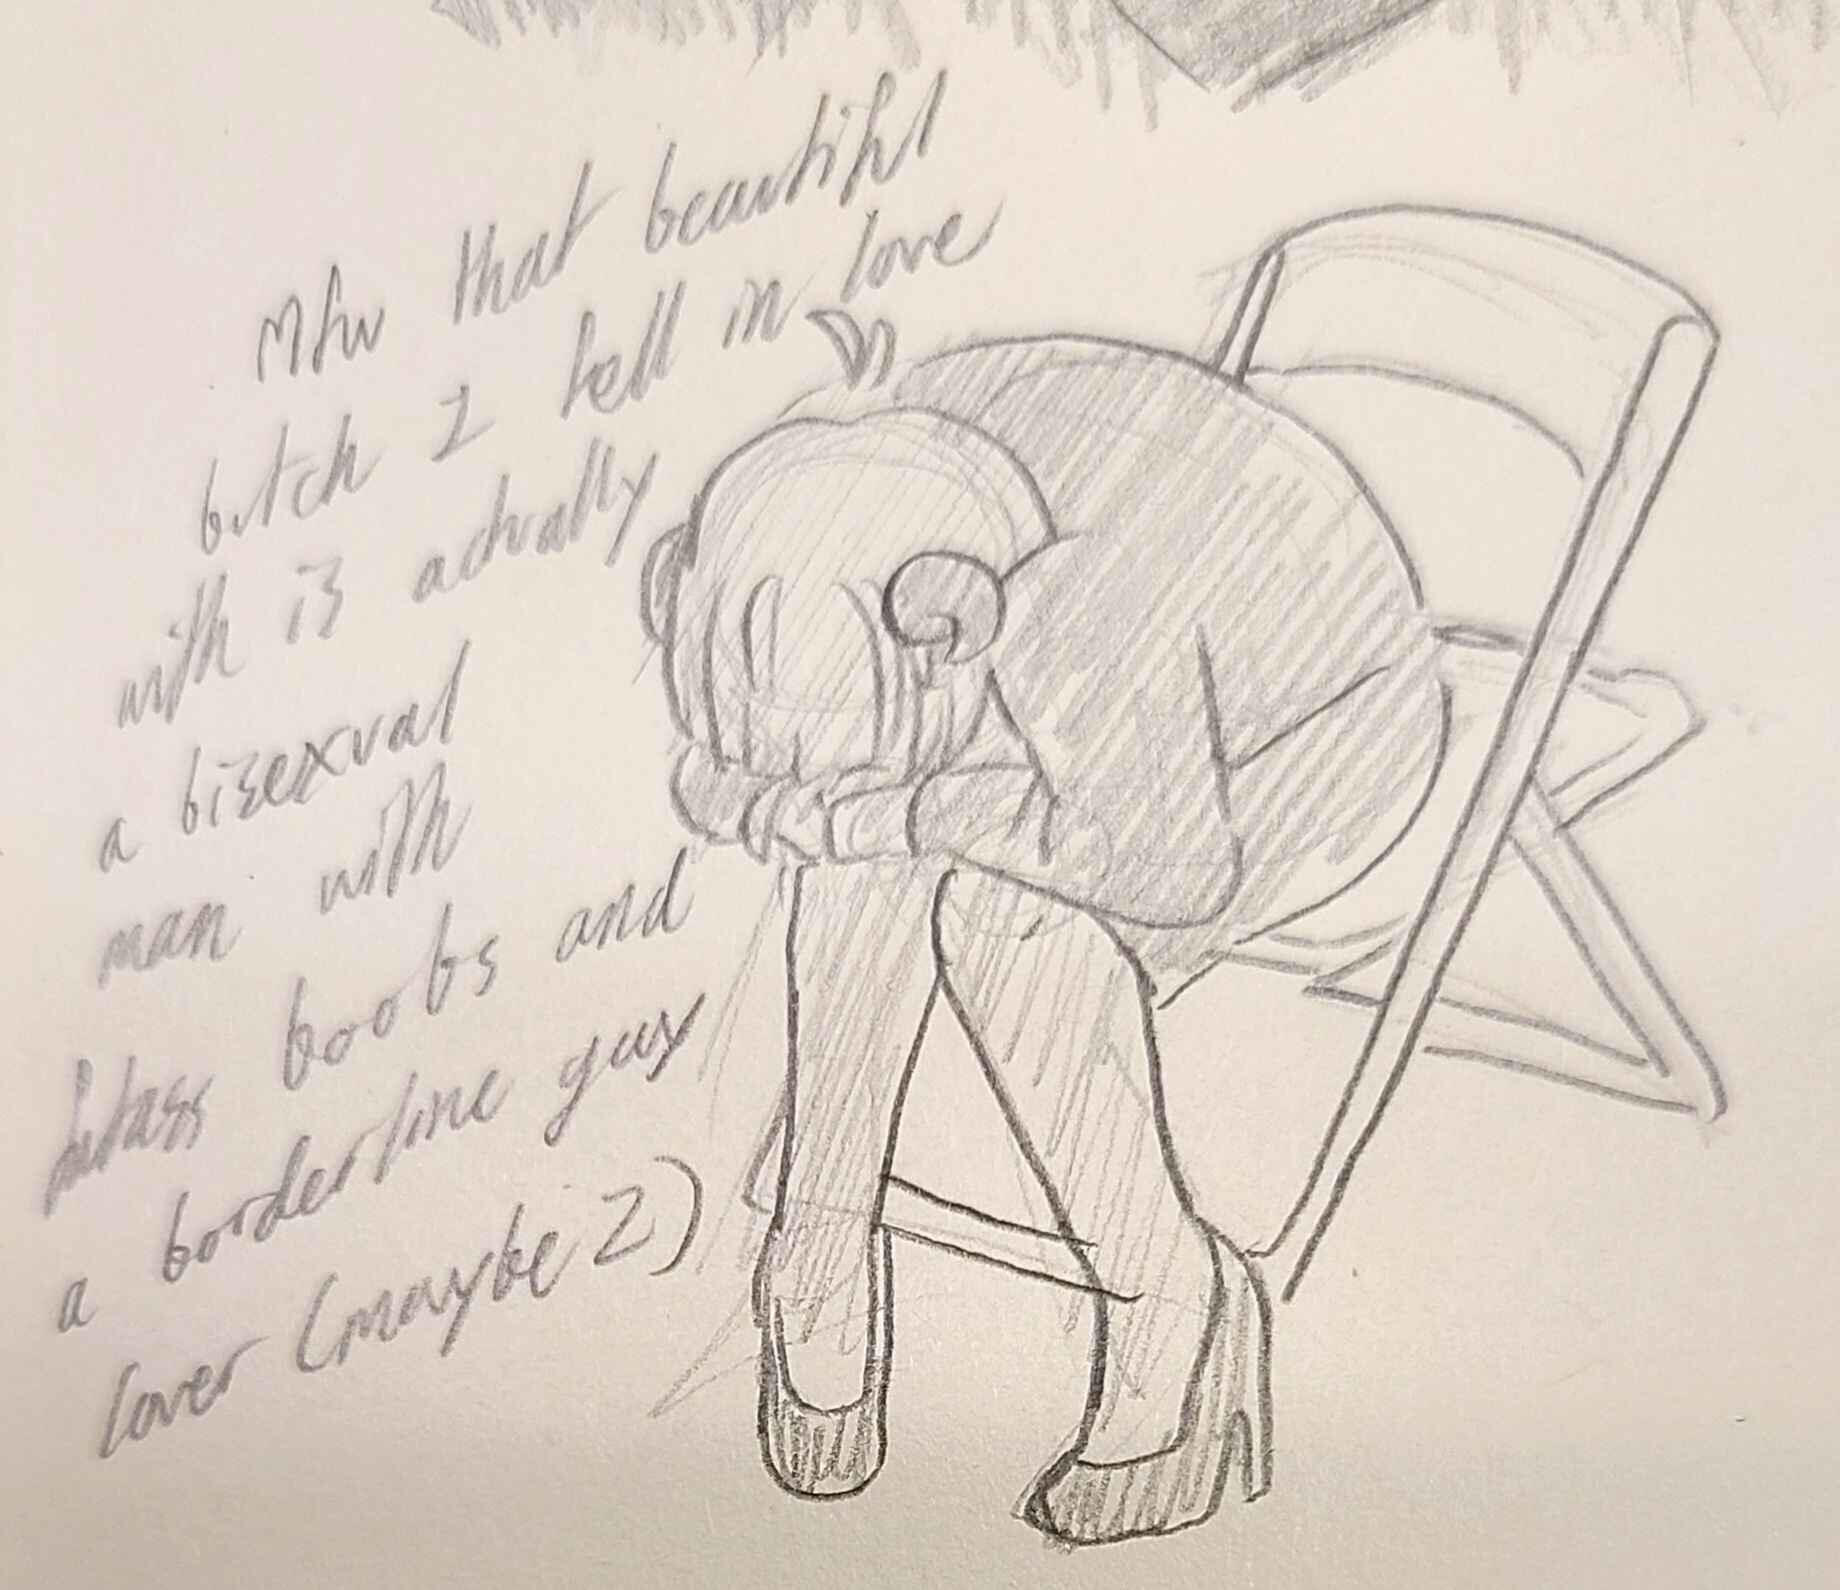 Mfw that beautiful
bitch I fell in love
with is actually
a bisexual
man with
fatass boobs and
a borderline guy
lover (maybe 2)